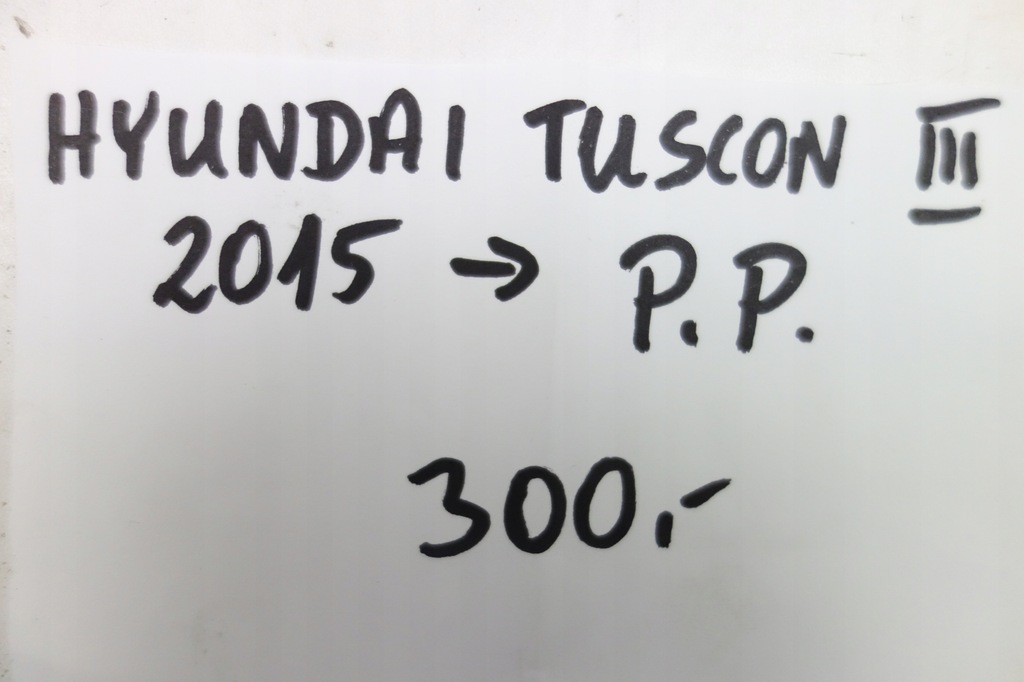 HYUNDAI TUSCON III
2015 → P.P.
300,-